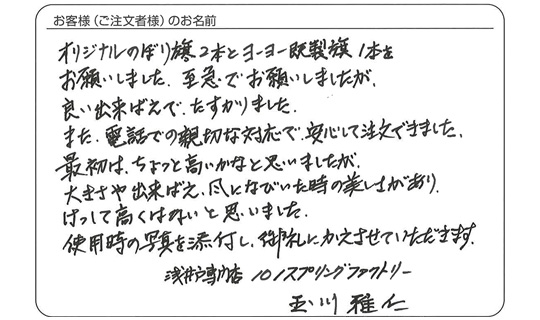 お客様（ご注文者様）のお名前
オリジナルのぼり旗2本とヨーヨー既製旗1本を
お願いしました。至急でお願いしましたが、
良い出来ばえで、たすかりました。
また、電話での親切な対応で、安心して注文できました。
最初は、ちょっと高いかなと思いましたが、
大きさや出来ばえ、風になびいた時の美しさがあり、
けっして高くはないと思いました。
使用時の写真を添付し、御礼にかえさせていただきます。
浅井戸専門店 101スプリングファクトリー
玉川雅仁